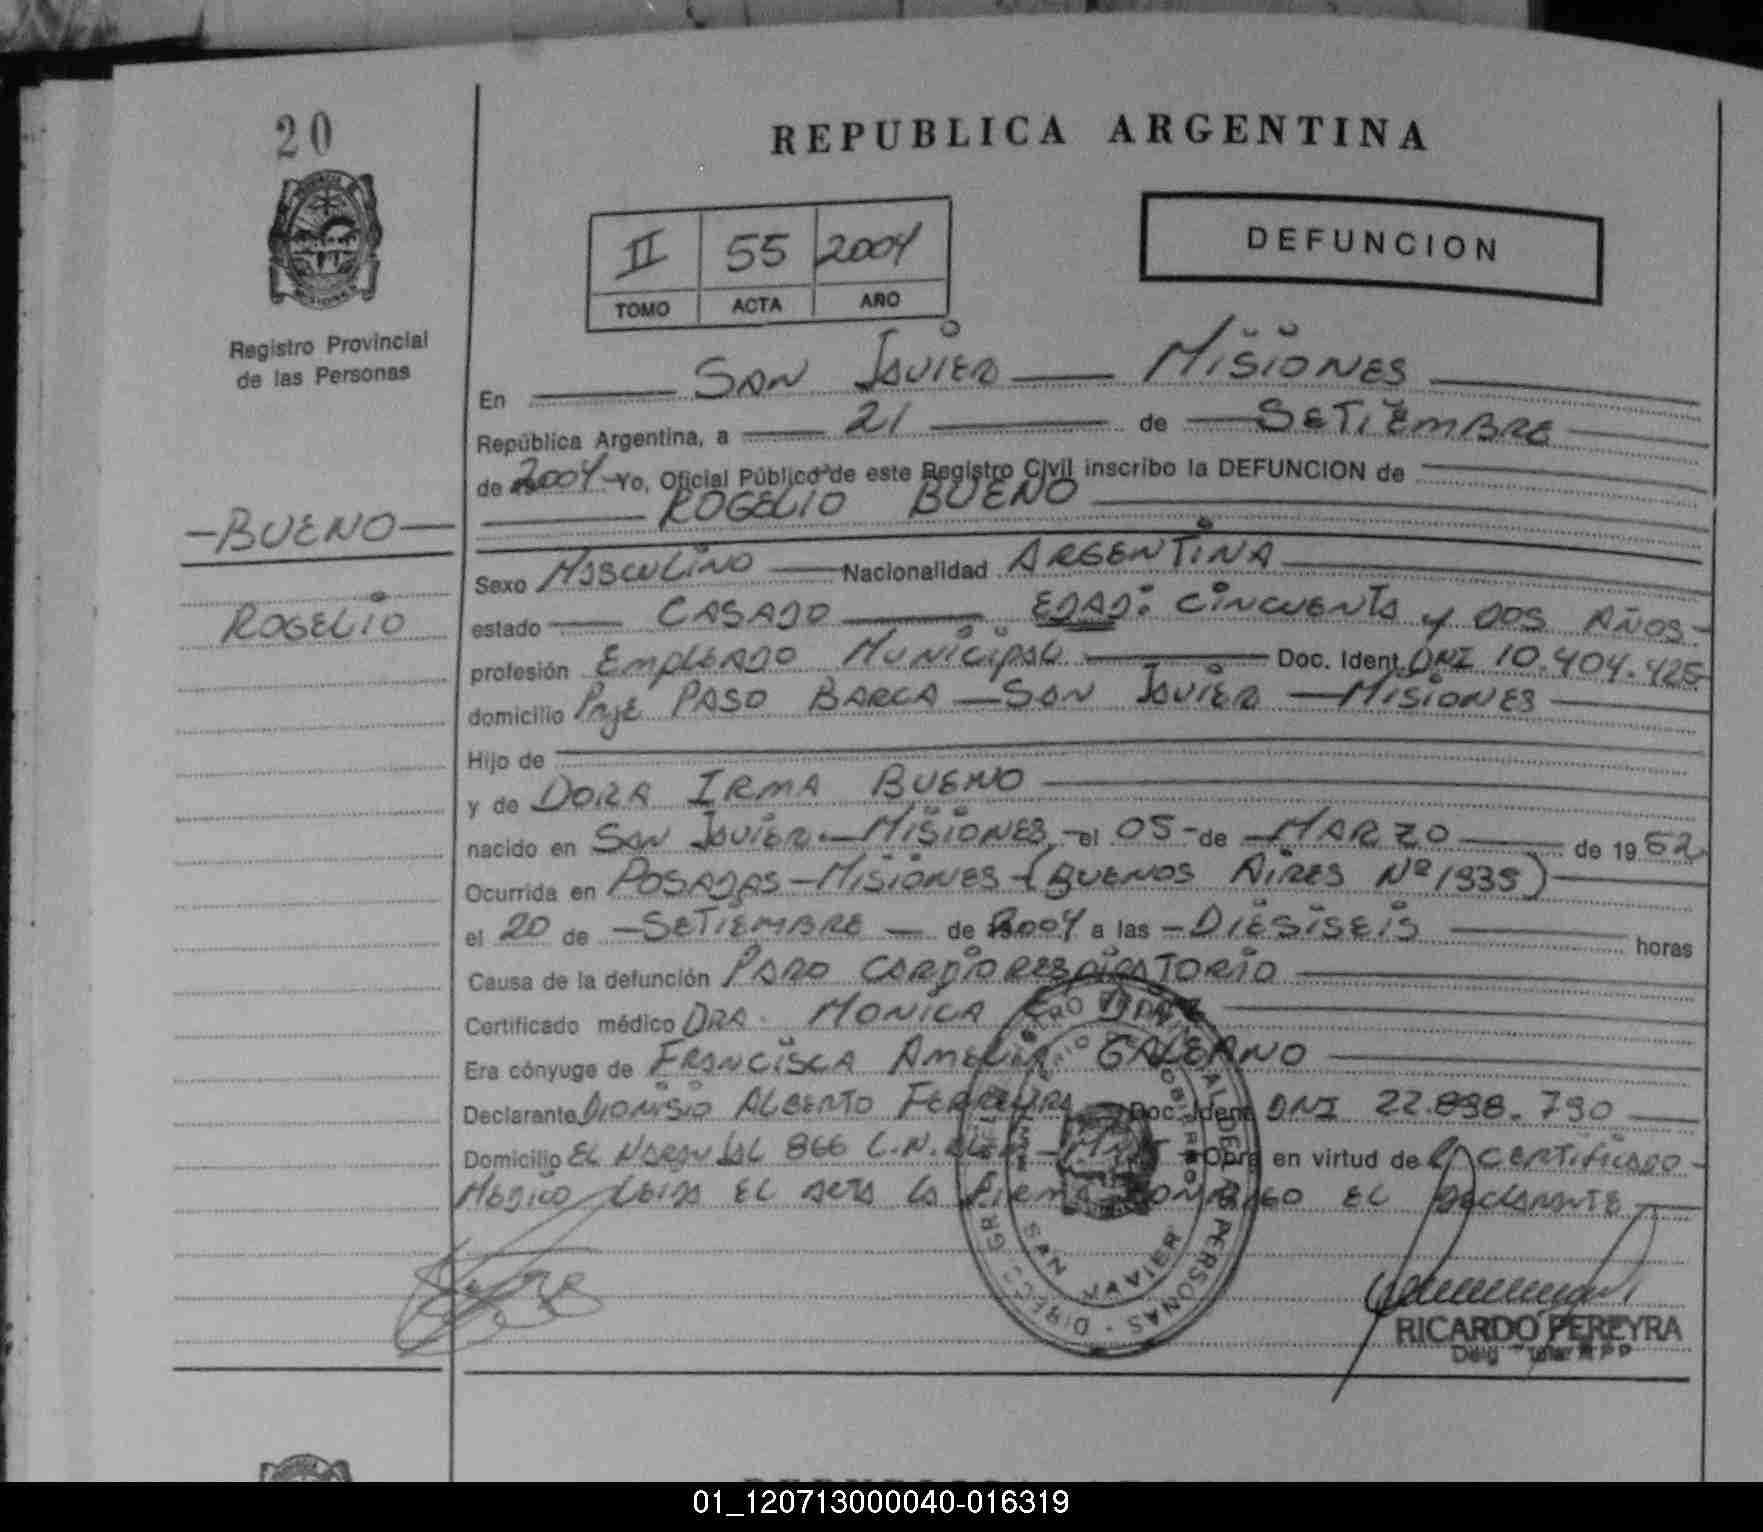 20
REPUBLICA ARGENTINA
DEFUNCION
II 55 2004
TOMO ACTA AÑO
Registro Provincial
de las Personas
En SAN JAVIER MISIONES
República Argentina, a 21 de SETIEMBRE
de 2004 Yo, Oficial Público de este Registro Civil inscribo la DEFUNCION de
ROGELIO BUENO
-BUENO-
ROGELIO
Sexo MASCULINO Nacionalidad ARGENTINA
estado CASADO EDAD: CINCUENTA y DOS AÑOS-
profesión EMPLEADO MUNICIPAL Doc. Ident. DNI 10.404.425
domicilio Pje PASO BARCA - SAN JAVIER - MISIONES
Hijo de
y de DORA IRMA BUENO
nacido en SAN JAVIER - MISIONES - el 05 - de MARZO de 1952
Ocurrida en POSADAS - MISIONES - (BUENOS AIRES Nº 1935)
el 20 de - SETIEMBRE - de 2004 a las - DIESISEIS horas
Causa de la defunción PARO CARDIORESPIRATORIO
Certificado médico DRA. MONICA
Era cónyuge de FRANCISCA AMELIA GALEANO
Declarante DIONISIO ALBERTO FERREIRA Doc. Ident DNI 22.898.790
Domicilio EL NARANJAL 866 L.N. ALEM - Obra en virtud de CERTIFICADO -
MEDICO LEIDA EL ACTA LA FIRMA CONMIGO EL DECLARANTE
SAN JAVIER
RICARDO PEREYRA
01_120713000040-016319